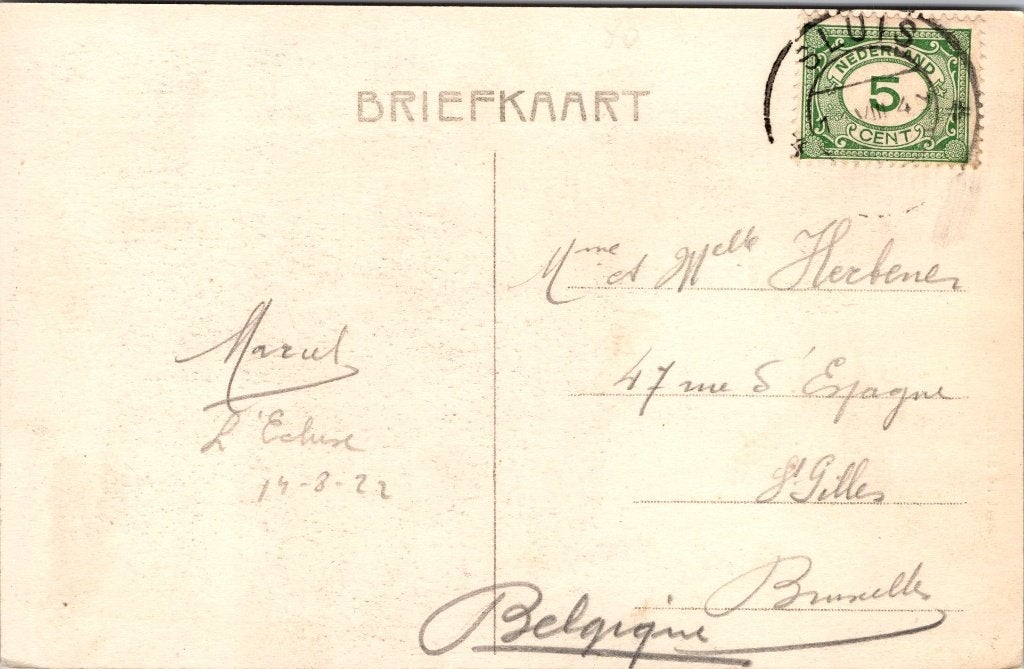 BRIEFKAART
SLUIS
NEDERLAND
5
CENT
Mme et Melle Herbener
47 rue d'Espagne
St Gilles
Bruxelles
Belgique
Marcel
L'Ecluse
14-8-22